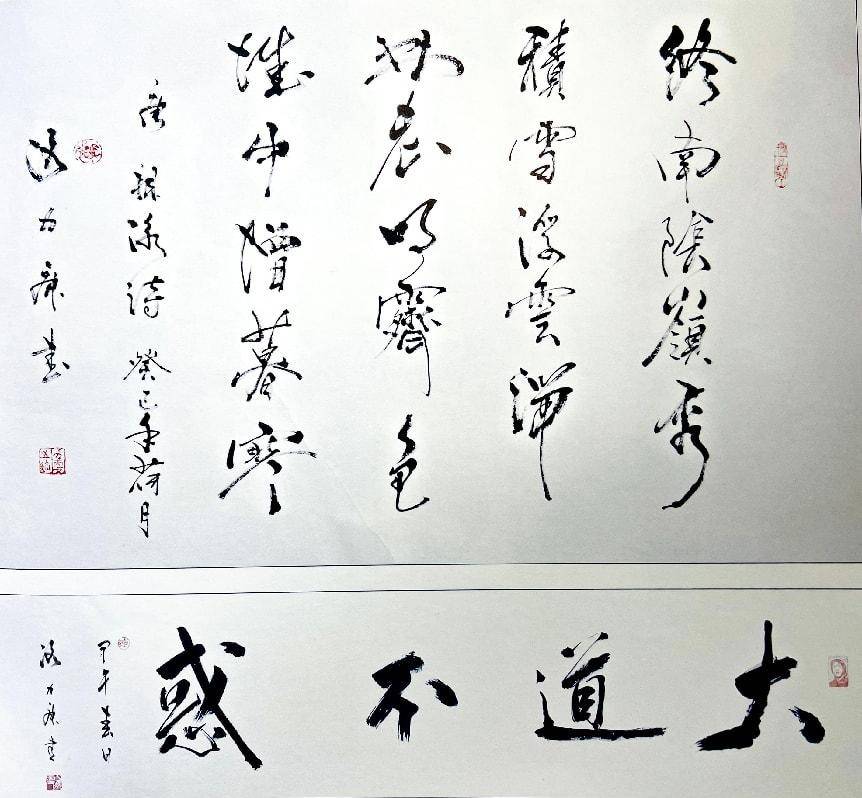 終南陰嶺秀
積雪浮雲端
林表明霽色
城中增暮寒
唐 祖詠詩 癸巳年荷月
力 書
大道不惑
甲午春日
力 書